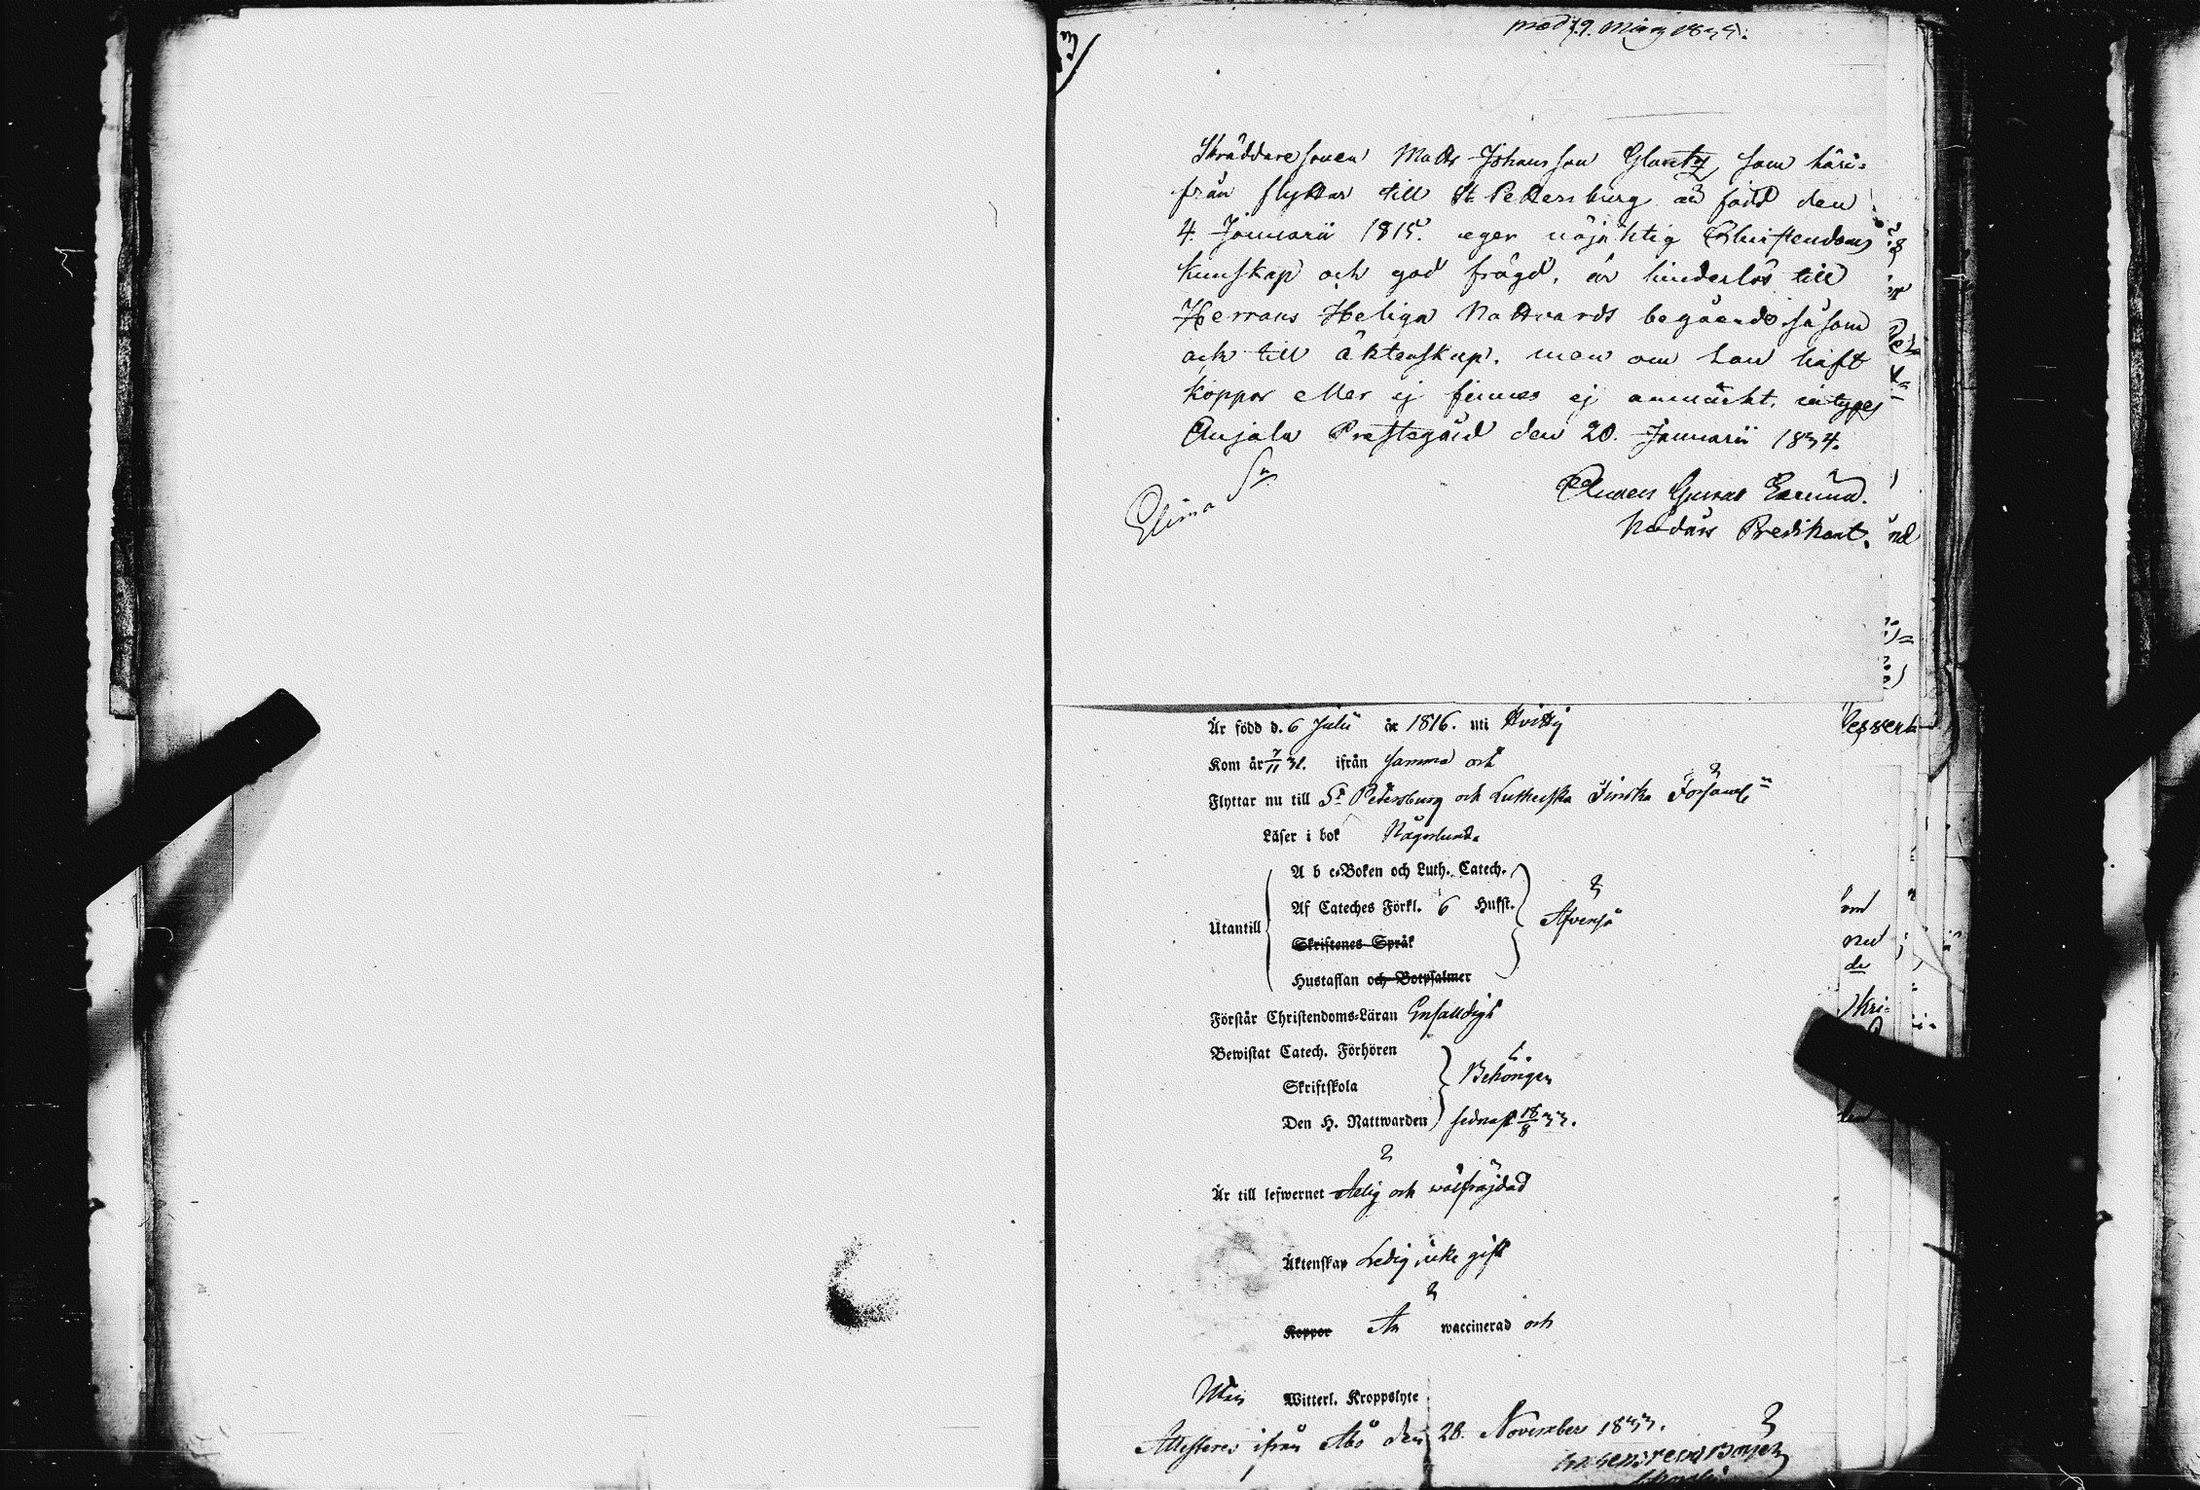 Skräddaresonen Matts Johansson Glantz, som häri-
från flyttar till St Pettersburg är född den
4. Januarii 1815. eger nöjaktig Christendoms
kunskap och god frägd, är hinderlös till
Herrans Heliga Nattvards begående såsom
och till äktenskap, men om han haft
koppor eller ej finnes ej anmärkt, intyges
Anjala Prestegård den 20. Januarii 1834.
Elimä Sn
Gustaf
Nådårs Predikant.
Är född d. 6 Julii år 1816. uti Hvittis
Kom år 7/11 31. ifrån samma och
Flyttar nu till St Petersburg och Lutherska Finska Församl=
Läser i bok Någorlunda
A b c-Boken och Luth. Catech.
Af Cateches Förkl. 6 Hufst.
Utantill Äfvenså
Skriftenes Språk
Hustaflan och Botpsalmer
Förstår Christendoms-Läran Enfalldigt
Bewistat Catech. Förhören
Skriftskola Behörigen
Den H. Nattwarden sednast 18/8 33.
Är till lefwernet ärlig och välfräjdad
Äktenskap Ledig icke gift
Koppor Är waccinerad och
Utan Witterl. Kroppslyte
Attesteres ifrån Åbo den 28. November 1833.